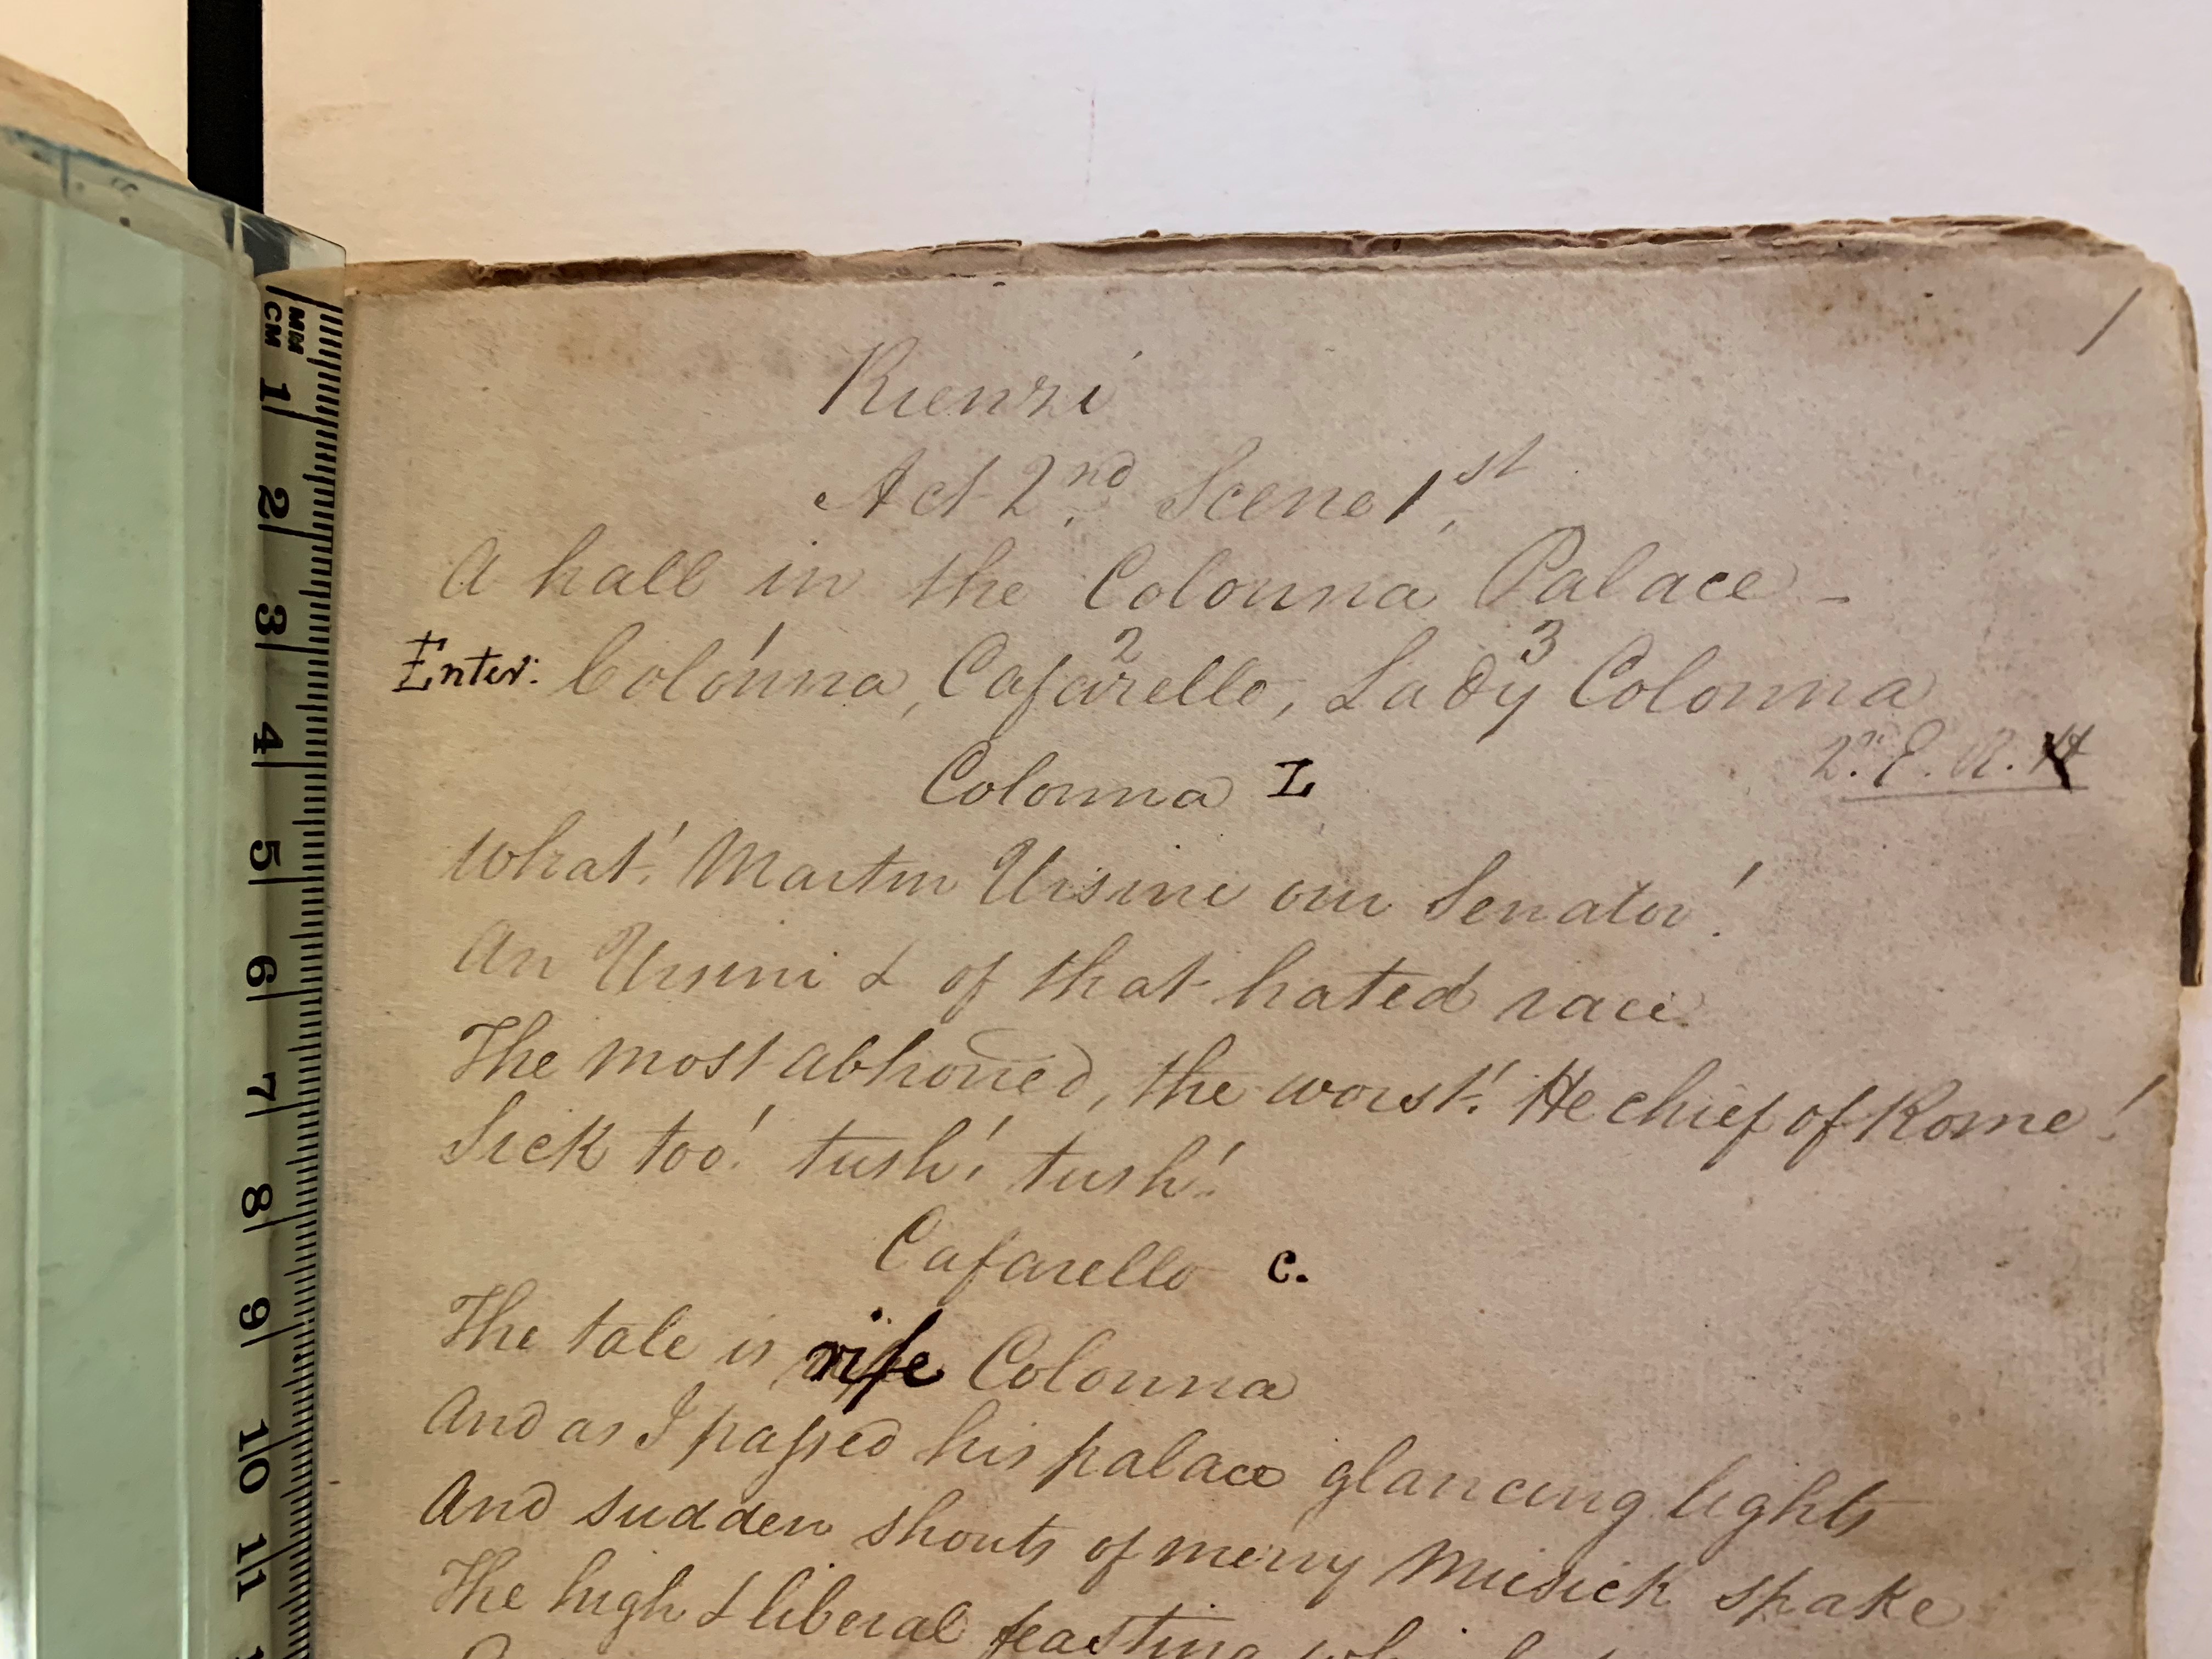 1
Rienzi
Act 2nd. Scene 1st.
A hall in the Colonna Palace -
1 2 3
Enter: Colonna, Cafarello, Lady Colonna
2.n E. R. H
Colonna L
What! Martin Ursini our Senator!
An Ursini & of that hated race.
The most abhorred, the worst! He chief of Rome!
Sick too! tush! tush!
Cafarello c.
The tale is rife Colonna
And as I passed his palace glancing lights
And sudden shouts of merry Musick spake
The high & liberal feasting
MM
CM
1
2
3
4
5
6
7
8
9
10
11